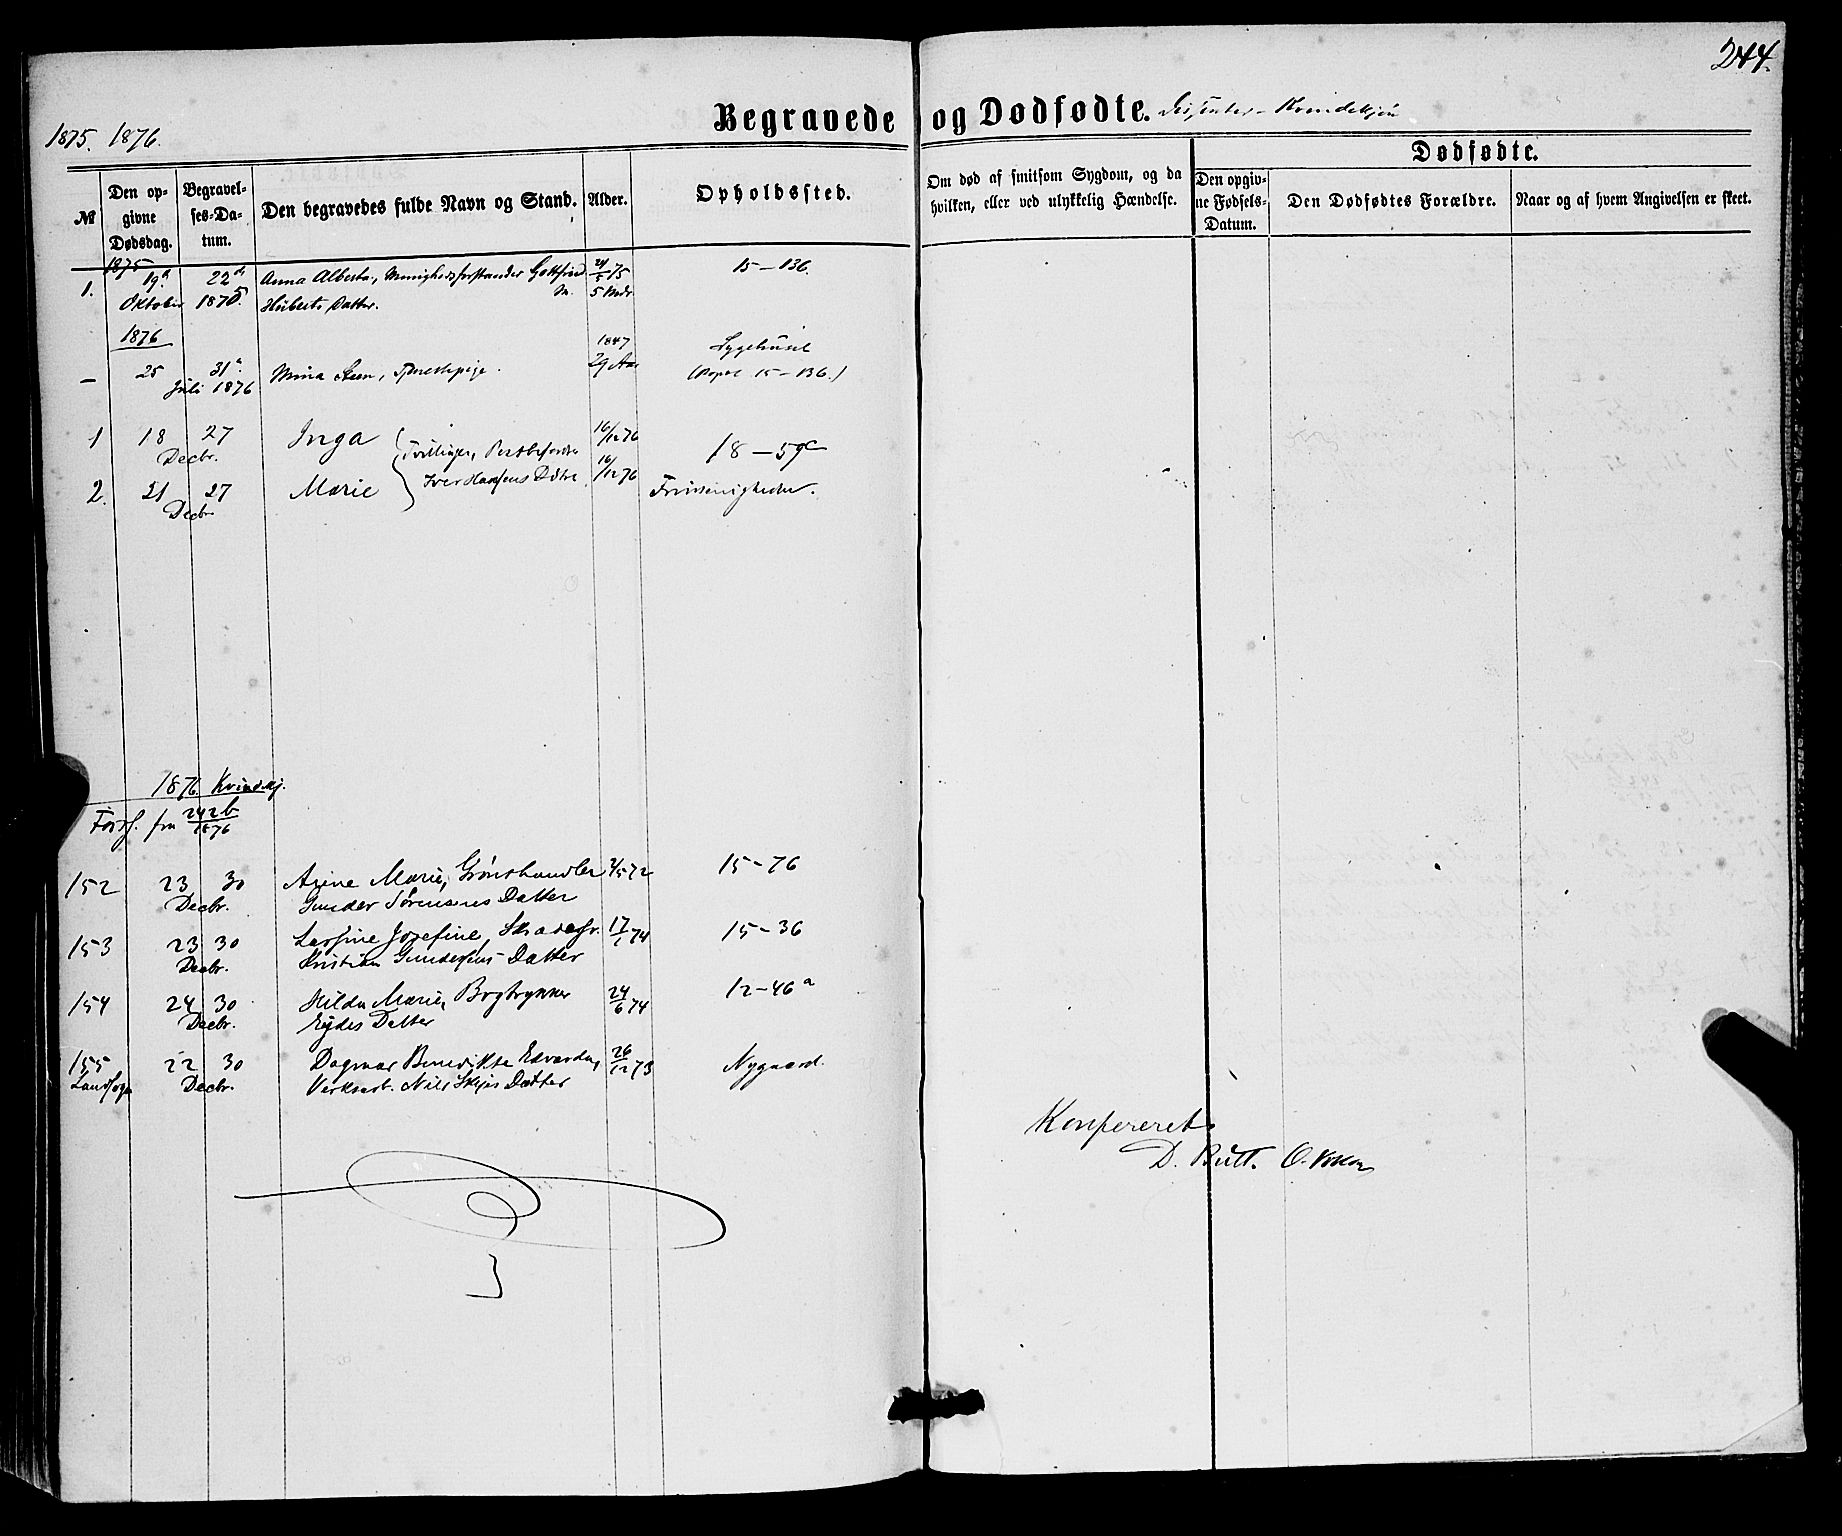 244.
1875. 1876.
Begravede og Dødfødte. Dissenter - Kvindekjøn
№
Den opgivne Dødsdag.
Begravelses-Datum.
Den begravedes fulde Navn og Stand.
Alder.
Opholdssted.
Om død af smitsom Sygdom, og da hvilken, eller ved ulykkelig Hændelse.
Dødfødte.
Den opgivne Fødsels-Datum.
Den Dødfødtes Forældre.
Naar og af hvem Angivelsen er skeet.
1875
1. 19d 22d Anna Alberta, Menighedsforstander Gottfried 21/5 75 15-136.
Oktober 1875. Huberts Datter. 5 Mdr
1876 1847 Sygehuset
— 25 31. Mina Steen, Tjenestepige. 29 Aar (Ropst 15-136.)
Juli 1876
1 18 27 Inga 16/12 76 18-59c
Decbr. Tvillinger,
2. 21 27 Marie Iver Hansens Døtre 16/12 76 Frimenigheden.
Decbr
1876. Kvindekj.
Forts. fra 242b/1876
152 23 30 Arine Marie, Grønthandler 2/5 72 15-76
Decbr. Gunder Sørensens Datter
153 23 30 Lassine Josefine, 17/1 74 15-36
Decbr. Kristian Gundersens Datter
154 24 30 Hilda Marie, Bogtrykker 24/6 74 12-46a
Decbr. Eydes Datter
155 22 30 Dagmar Benedikte Edvarda, 26/12 73 Nygaard.
Landsogn Decbr. Verksarb. Nils Skjes Datter
Konfereret
D. Bull. O.